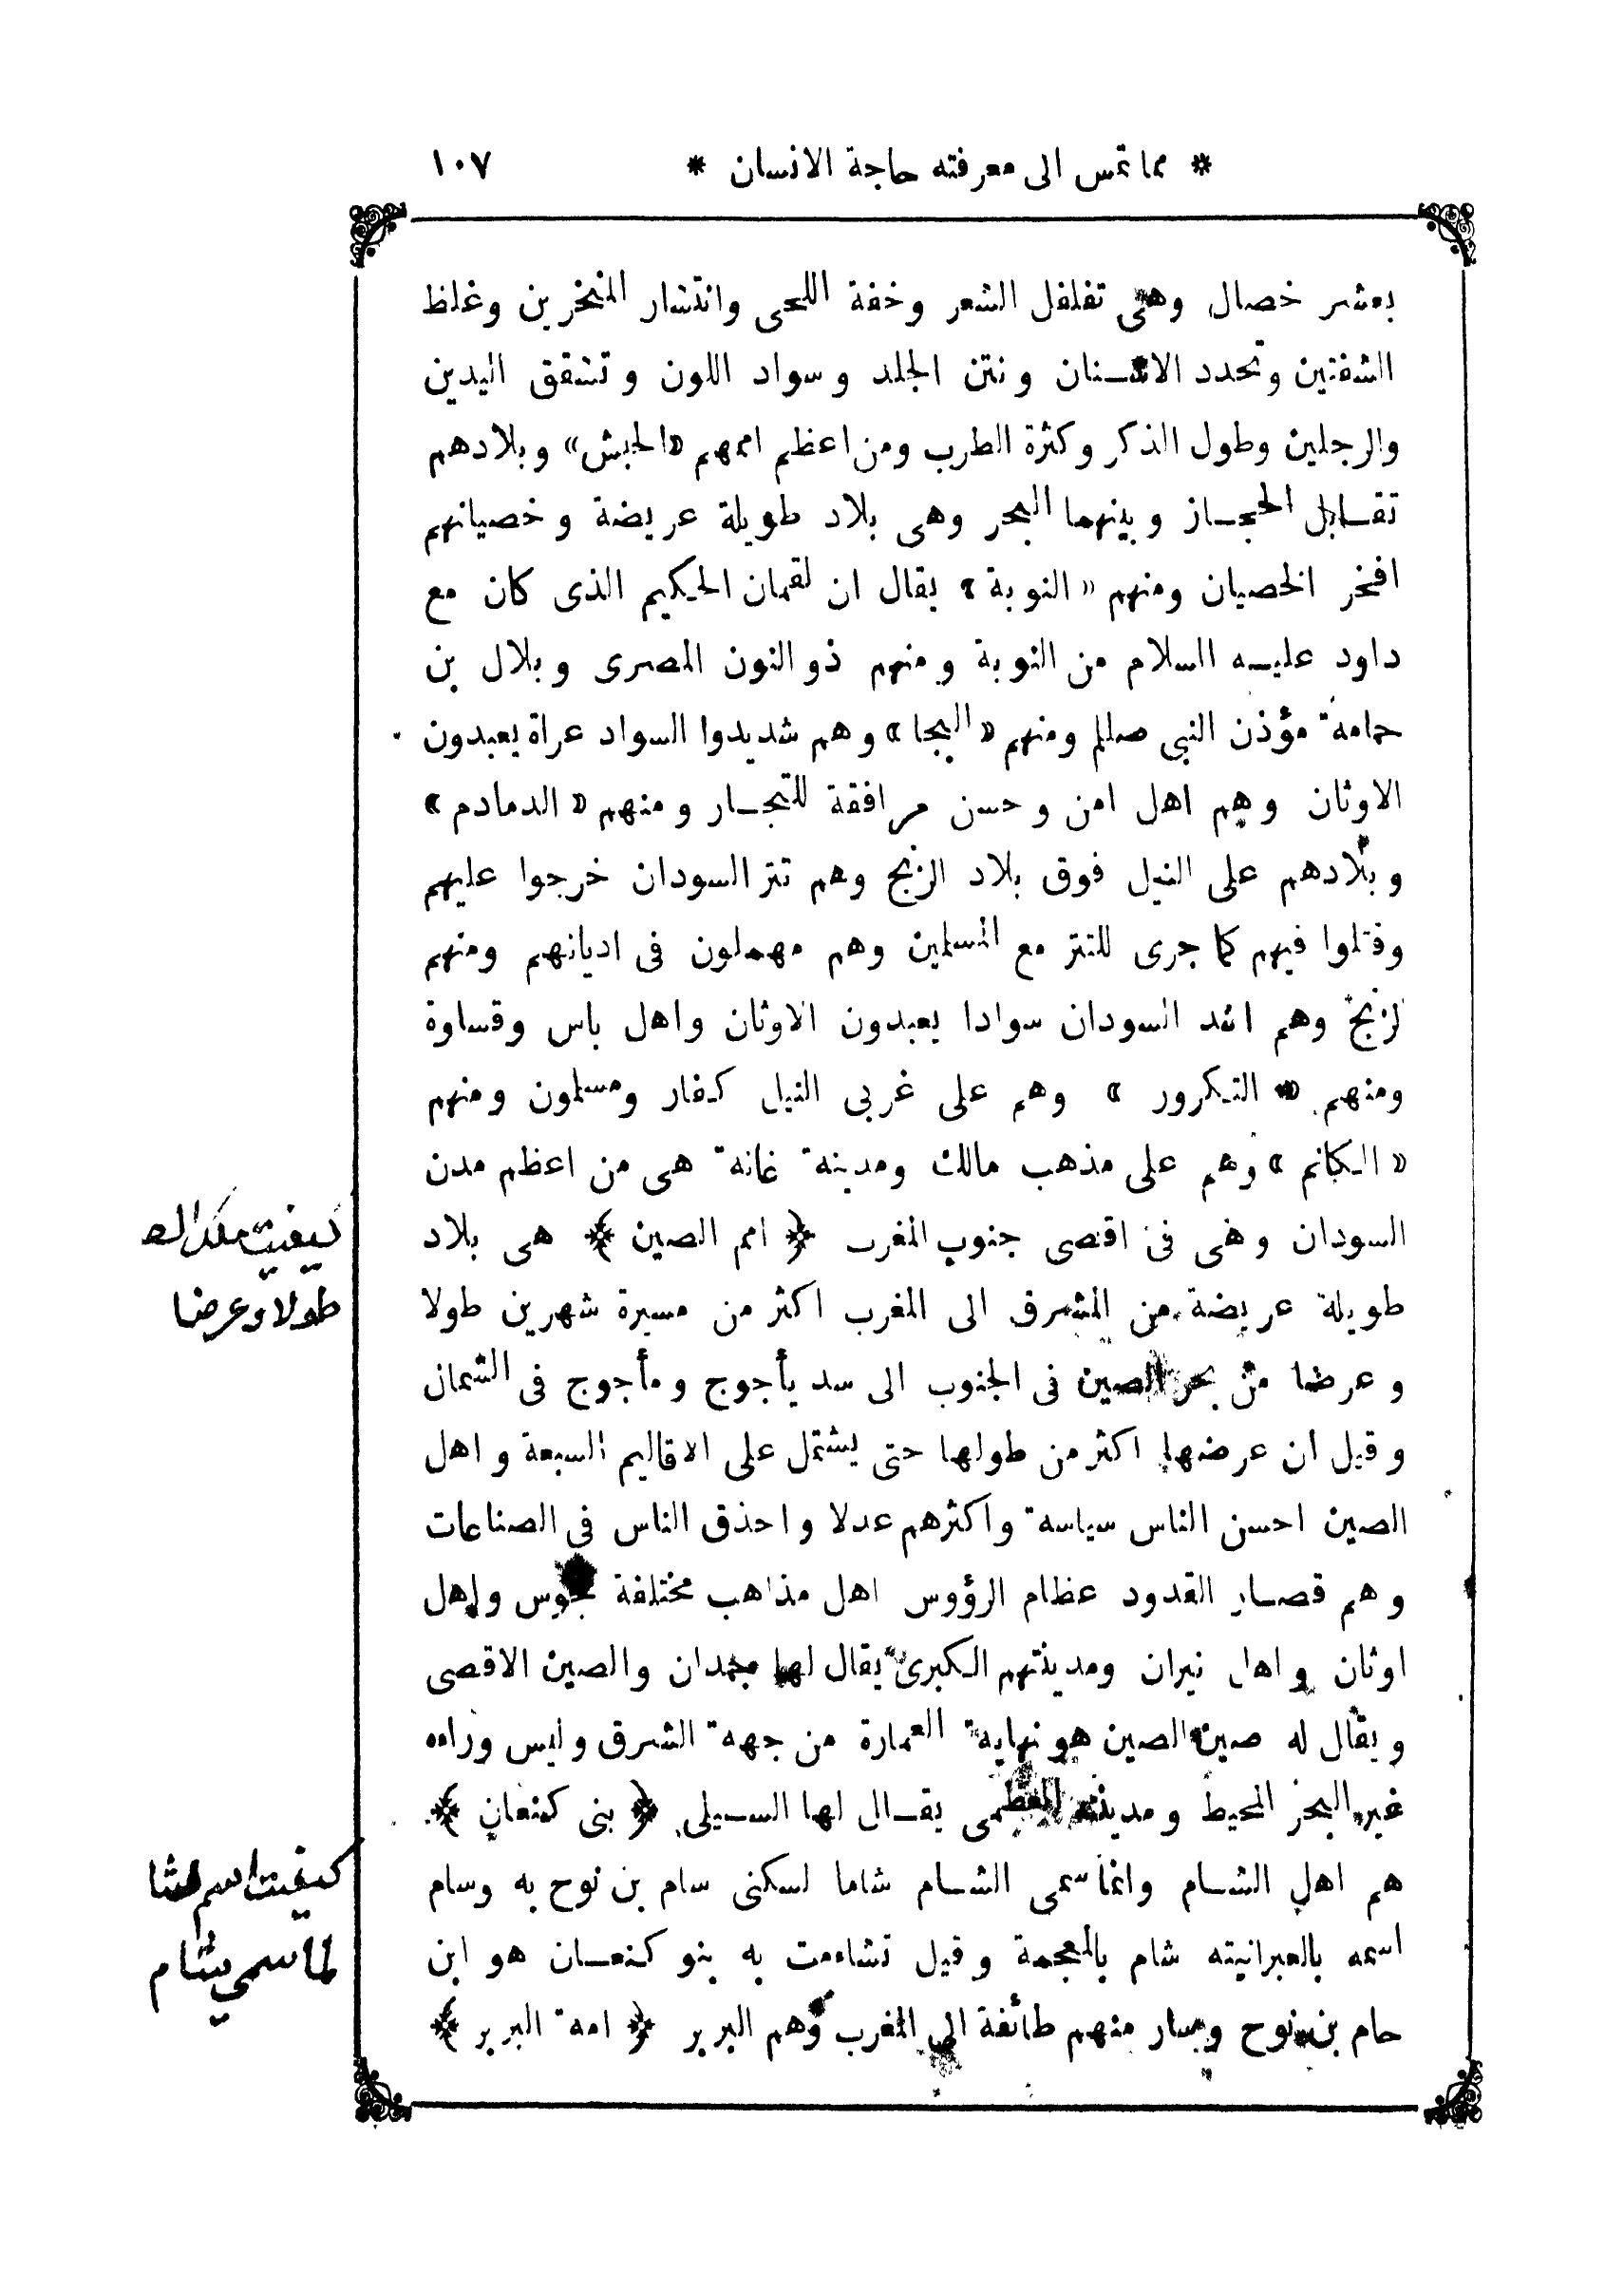 * مما تمس الى معرفته حاجة الانسان * ١٠٧
بعشر خصال وهى تفلفل الشعر وخفة اللحى وانتشار المنخرين وغلظ
الشفتين وتحدد الاسنان ونتن الجلد وسواد اللون وتشقق اليدين
والرجلين وطول الذكر وكثرة الطرب ومن اعظم اممهم «الحبش» وبلادهم
تقابل الحجاز وبينهما البحر وهى بلاد طويلة عريضة وخصيانهم
افخر الخصيان ومنهم «النوبة» يقال ان لقمان الحكيم الذى كان مع
داود عليه السلام من النوبة ومنهم ذو النون المصرى وبلال بن
حمامة مؤذن النبى صللم ومنهم «البجا» وهم شديدوا السواد عراة يعبدون
الاوثان وهم اهل امن وحسن مرافقة للتجار ومنهم «الدمادم»
وبلادهم على النيل فوق بلاد الزنج وهم تتر السودان خرجوا عليهم
وقتلوا فيهم كما جرى للتتر مع المسلمين وهم مهملون فى اديانهم ومنهم
لزنج وهم اشد السودان سوادا يعبدون الاوثان واهل باس وقساوة
ومنهم «التكرور» وهم على غربى النيل كفار ومسلمون ومنهم
«الكانم» وهم على مذهب مالك ومدينة غانة هى من اعظم مدن
السودان وهى فى اقصى جنوب المغرب ﴿ امم الصين ﴾ هى بلاد
طويلة عريضة من المشرق الى المغرب اكثر من مسيرة شهرين طولا
وعرضا من بحر الصين فى الجنوب الى سد يأجوج ومأجوج فى الشمال
وقيل ان عرضها اكثر من طولها حتى يشتمل على الاقاليم السبعة واهل
الصين احسن الناس سياسة واكثرهم عدلا واحذق الناس فى الصناعات
وهم قصار القدود عظام الرؤوس اهل مذاهب مختلفة مجوس واهل
اوثان واهل نيران ومدينتهم الكبرى يقال لها جمدان والصين الاقصى
ويقال له صين الصين هو نهاية العمارة من جهة الشرق وليس وراءه
غير البحر المحيط ومدينته العظمى يقال لها السيلى ﴿ بنى كنعان ﴾
هم اهل الشام وانما سمى الشام شاما لسكنى سام بن نوح به وسام
اسمه بالعبرانيته شام بالمعجمة وقيل تشاءمت به بنو كنعان هو ابن
حام بن نوح وسار منهم طائفة الى المغرب وهم البربر ﴿ امة البربر ﴾
كيفيت ملك الص
طولا وعرضا
كيفيت اسم شا
لما سمى شام